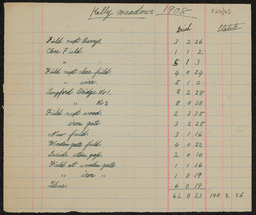 Kelly meadows 1908
Irish Statute
Field next Barrys. 3 2 26
Clare Field. 1 1 2
" 5 1 3
Field next clare field. 4 0 24
" " wire. 5 1 0
Longford Bridge No1. 8 2 28
" " No2 8 0 38
Field next wood. 2 3 25
" iron gate 3 2 25
New field. 3 1 16
Wooden gate field. 4 0 22
Inside stone gap. 2 0 10
Field at wooden gate 1 1 36
" " iron " 1 2 19
6 0 19
62 0 23 100 2 26